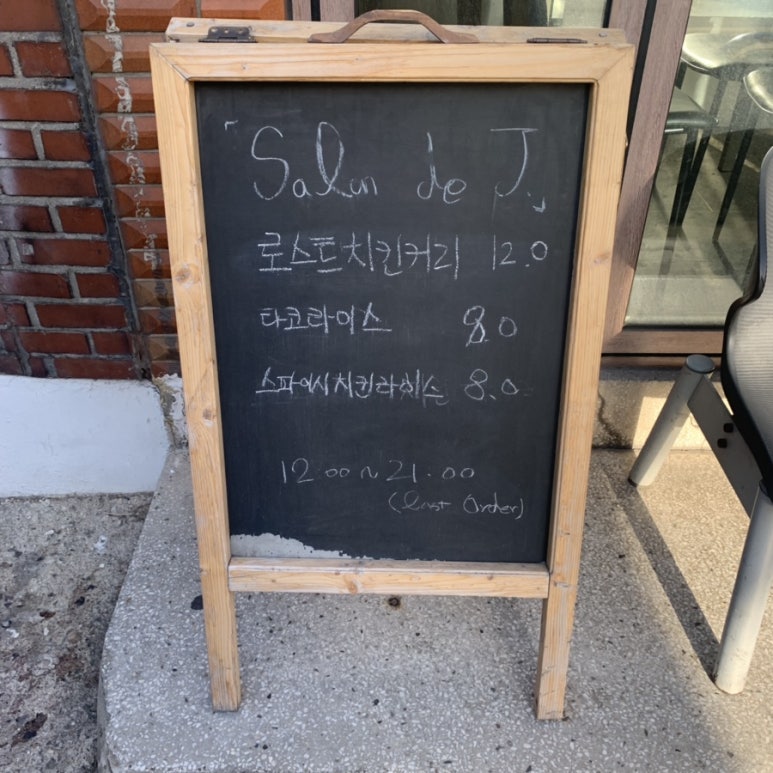 「Salon de J.」
로스트치킨커리 12.0
타코라이스 8.0
스파이시치킨라이스 8.0
12.00 ~ 21.00
(Last Order)